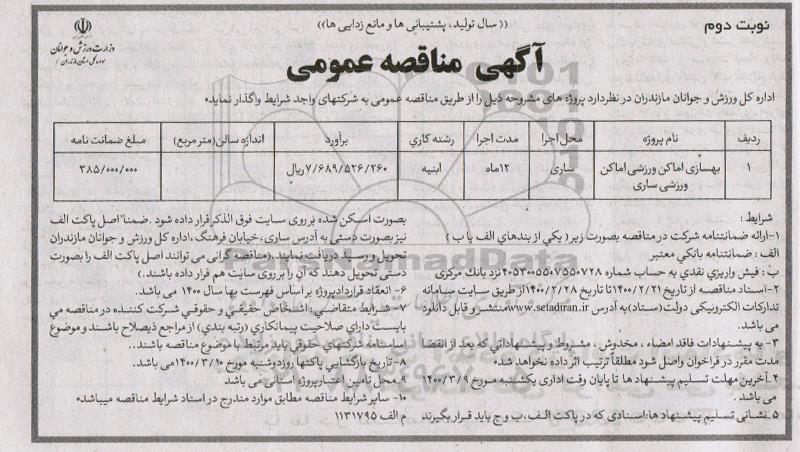 نوبت دوم
(( سال تولید، پشتیبانی ها و مانع زدایی ها))
وزارت ورزش و جوانان
اداره کل استان مازندران
آگهی مناقصه عمومی
اداره کل ورزش و جوانان مازندران در نظردارد پروژه های مشروحه ذیل را از طریق مناقصه عمومی به شرکتهای واجد شرایط واگذار نماید.
ردیف نام پروژه محل اجرا مدت اجرا رشته کاري برآورد اندازه سالن(متر مربع) مبلغ ضمانت نامه
۱ بهسازی اماکن ورزشی اماکن ورزشی ساری ساری ۱۲ماه ابنیه ۷/۶۸۹/۵۲۶/۲۶۰ریال ۳۸۵/۰۰۰/۰۰۰
شرایط :
۱-ارائه ضمانتنامه شرکت در مناقصه بصورت زیر ( یکي از بندهاي الف یا ب )
الف : ضمانتنامه بانکي معتبر
ب : فیش واریزي نقدي به حساب شماره ۴۰۵۳۰۰۵۵۰۷۵۵۰۷۲۸نزد بانك مرکزی
۲-اسناد مناقصه از تاریخ ۱۴۰۰/۲/۲۱تا تاریخ ۱۴۰۰/۲/۲۸از طریق سایت سامانه
تدارکات الکترونیکی دولت(ستاد)به آدرس www.setadiran.irمنتشر و قابل دانلود
می باشد.
۳- به پیشنهادات فاقد امضاء ، مخدوش ، مشروط و پیشنهاداتی که بعد از انقضا
مدت مقرر در فراخوان واصل شود مطلقاً ترتیب اثر داده نخواهد شد.
۴-آخرین مهلت تسلیم پیشنهاد ها تا پایان وقت اداری یکشنبه مورخ ۱۴۰۰/۳/۹
می باشد .
۵-نشانی تسلیم پیشنهاد ها:اسنادی که در پاکت الف،ب و ج باید قرار بگیرند
بصورت اسکن شده بر روی سایت فوق الذکر قرار داده شود .ضمنا" اصل پاکت الف
نیز بصورت دستی به آدرس ساری،خیابان فرهنگ،اداره کل ورزش و جوانان مازندران
تحویل و رسید دریافت نمایند.(مناقصه گرانی می توانند اصل پاکت الف را بصورت
دستی تحویل دهند که آن را بر روی سایت هم قرار داده باشند.)
۶- انعقاد قراردادپروژه بر اساس فهرست بها سال ۱۴۰۰ می باشد.
۷- شرایط متقاضي: اشخاص حقیقي و حقوقي شرکت کننده در مناقصه مي
بایست داراي صلاحیت پیمانکاري (رتبه بندي) از مراجع ذیصلاح باشند و موضوع
اساسنامه شرکتهاي حقوقي باید مرتبط با موضوع مناقصه باشند.
۸-تاریخ بازگشایي پاکتها روزدوشنبه مورخ ۱۴۰۰/۳/۱۰می باشد.
۹.محل تامین اعتبارپروژه استانی می باشد
۱۰- سایر شرایط مناقصه مطابق موارد مندرج در اسناد شرایط مناقصه میباشد.
م الف ۱۱۳۱۷۹۵